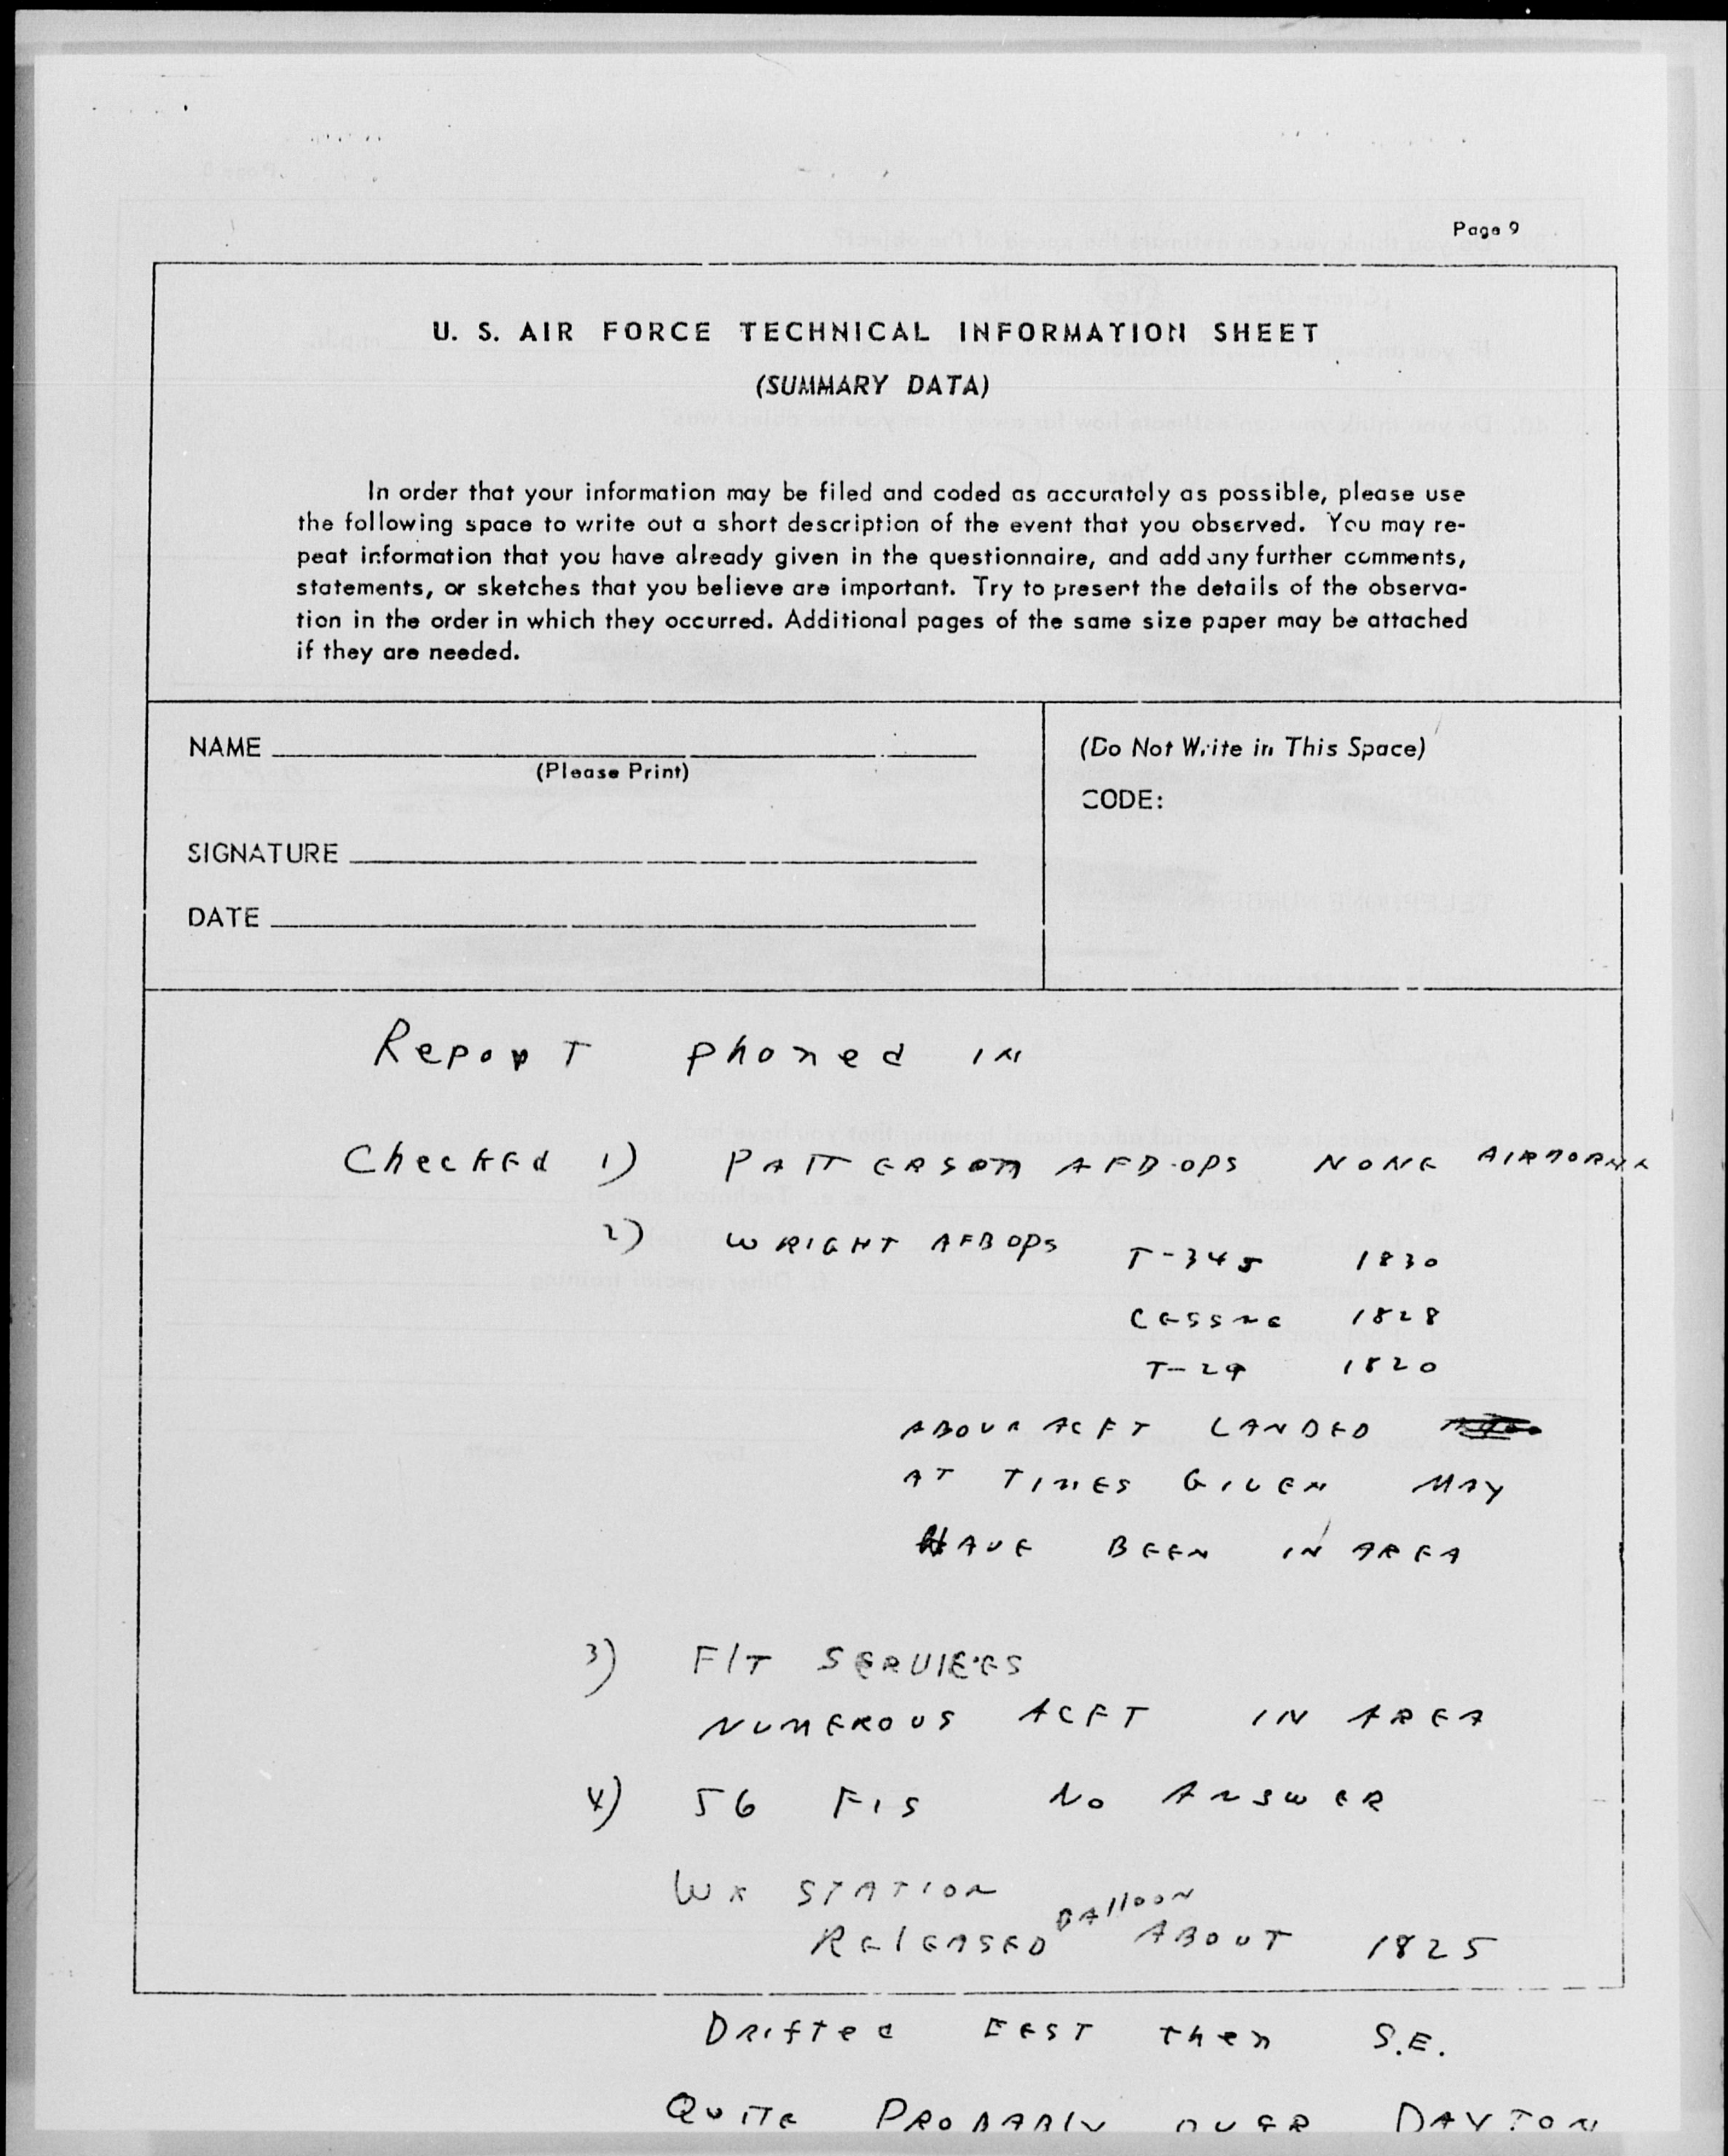 Page 9
U. S. AIR FORCE TECHNICAL INFORMATION SHEET
(SUMMARY DATA)
In order that your information may be filed and coded as accurately as possible, please use
the following space to write out a short description of the event that you observed. You may re-
peat information that you have already given in the questionnaire, and add any further comments,
statements, or sketches that you believe are important. Try to present the details of the observa-
tion in the order in which they occurred. Additional pages of the same size paper may be attached
if they are needed.
NAME
(Please Print)
SIGNATURE
DATE
(Do Not Write in This Space)
CODE:
Report phoned in
Checked 1) PATTERSON AFB OPS NONE AIRBORNE
2) WRIGHT AFB OPS T-345 1830
Cessna 1828
T-29 1820
ABOVE ACFT LANDED
AT TIMES GIVEN MAY
HAVE BEEN IN AREA
3) F/T SERVICES
NUMEROUS ACFT IN AREA
4) 56 FIS NO ANSWER
WX STATION
RELEASED BAlloon ABOUT 1825
Drifted EAST then S.E.
QUITE PROBABLY OVER DAYTON